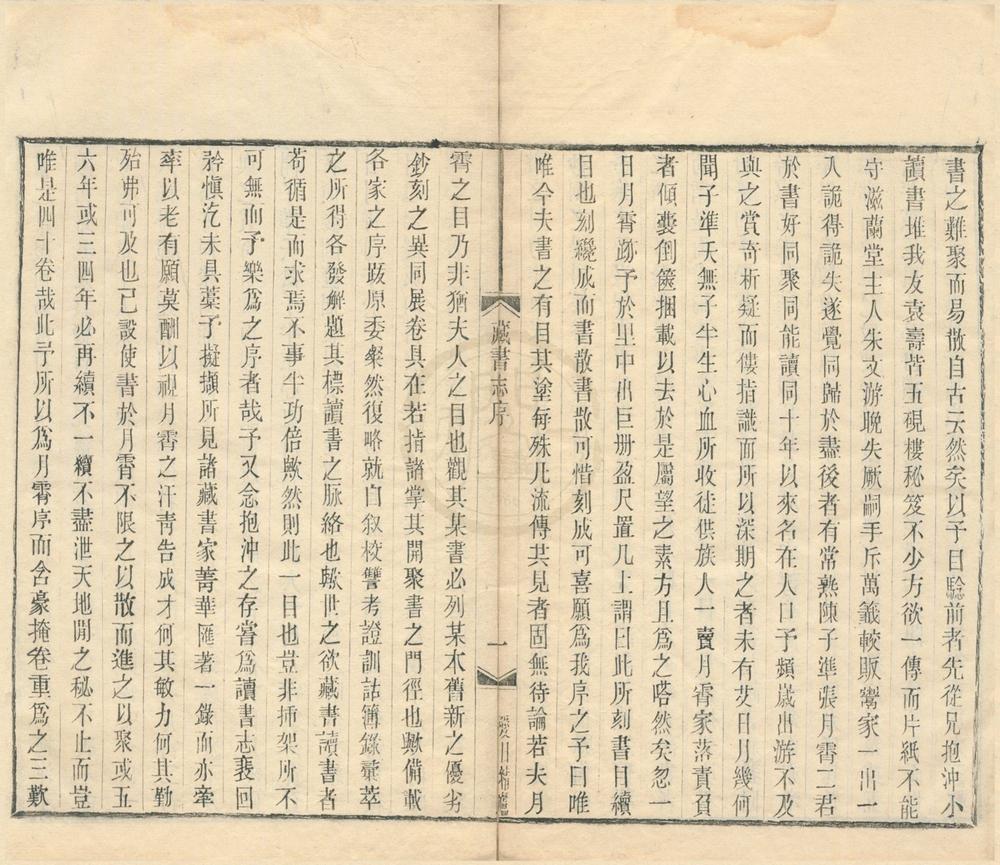 書之難聚而易散自古云然矣以予目驗前者先從兄抱沖小
讀書堆我友袁壽喈五硯樓秘笈不少方欲一傳而片紙不能
守滋蘭堂主人朱文游晚失厥嗣手斥萬籤較販鬻家一出一
入詭得詭失遂覺同歸於盡後者有常熟陳子準張月霄二君
於書好同聚同能讀同十年以來名在人口予頻歲出游不及
與之賞奇析疑而僂指識面所以深期之者未有艾日月幾何
聞子準夭無子半生心血所收徒供族人一賣月霄家落責負
者傾囊倒篋捆載以去於是屬望之素方且爲之嗒然矣忽一
日月霄跡予於里中出巨册盈尺置几上謂曰此所刻書目續
目也刻纔成而書散書散可惜刻成可喜願爲我序之予曰唯
唯今夫書之有目其塗每殊凡流傳共見者固無待論若夫月
藏書志序
一
愛日精廬
霄之目乃非猶夫人之目也觀其某書必列某本舊新之優劣
鈔刻之異同展卷具在若指諸掌其開聚書之門徑也歟備載
各家之序跋原委粲然復略就自叙校讐考證訓詁簿錄彙萃
之所得各發解題其標讀書之脈絡也歟世之欲藏書讀書者
苟循是而求焉不事半功倍歟然則此一目也豈非揷架所不
可無而予樂爲之序者哉予又念抱沖之存嘗爲讀書志裴回
矜愼汔未具藁予擬擷所見諸藏書家菁華匯著一錄而亦牽
率以老有願莫酬以視月霄之汗青告成才何其敏力何其勤
殆弗可及也已設使書於月霄不限之以散而進之以聚或五
六年或三四年必再續不一續不盡泄天地閒之秘不止而豈
唯是四十卷哉此予所以爲月霄序而含豪掩卷重爲之三歎